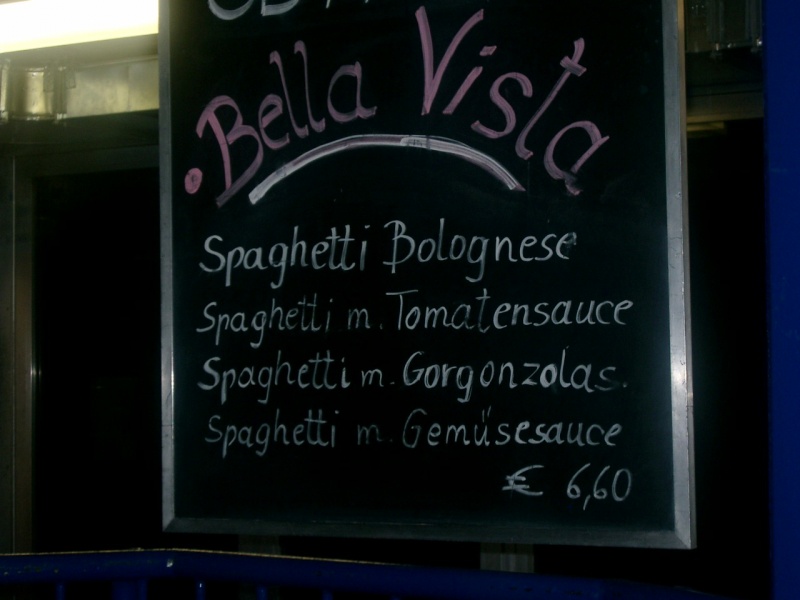 Bella Vista
Spaghetti Bolognese
Spaghetti m. Tomatensauce
Spaghetti m. Gorgonzolas.
Spaghetti m. Gemüsesauce
€ 6,60